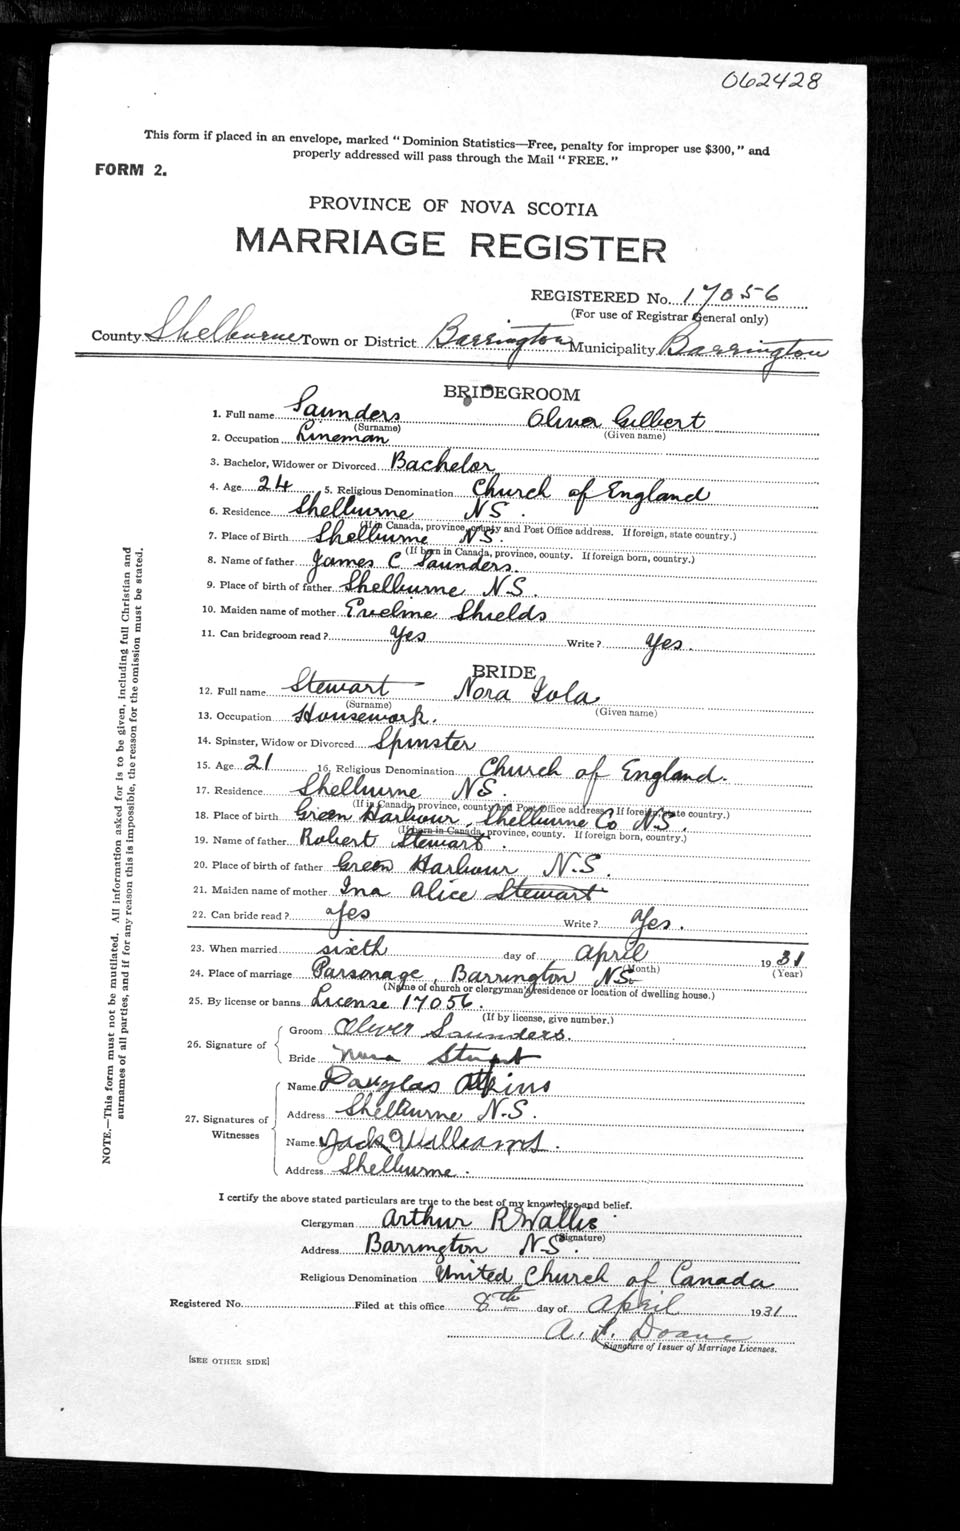 062428
This form if placed in an envelope, marked "Dominion Statistics—Free, penalty for improper use $300," and
properly addressed will pass through the Mail "FREE."
FORM 2.
PROVINCE OF NOVA SCOTIA
MARRIAGE REGISTER
REGISTERED No. 17056
(For use of Registrar General only)
County Shelburne Town or District Barrington Municipality Barrington
BRIDEGROOM
1. Full name Saunders Oliver Gilbert
(Surname) (Given name)
2. Occupation Lineman
3. Bachelor, Widower or Divorced Bachelor
4. Age 24 5. Religious Denomination Church of England
6. Residence Shelburne NS.
(If in Canada, province, county and Post Office address. If foreign, state country.)
7. Place of Birth Shelburne NS.
(If born in Canada, province, county. If foreign born, country.)
8. Name of father James C Saunders.
9. Place of birth of father Shelburne N.S.
10. Maiden name of mother Evelme Shields
11. Can bridegroom read? Yes Write? Yes.
BRIDE
12. Full name Stewart Nora Iola
(Surname) (Given name)
13. Occupation Housework.
14. Spinster, Widow or Divorced Spinster
15. Age 21 16. Religious Denomination Church of England.
17. Residence Shelburne N.S.
(If in Canada, province, county and Post Office address. If foreign, state country.)
18. Place of birth Green Harbour, Shelburne Co N.S.
(If born in Canada, province, county. If foreign born, country.)
19. Name of father Robert Stewart.
20. Place of birth of father Green Harbour N.S.
21. Maiden name of mother Ina Alice Stewart
22. Can bride read? Yes Write? Yes.
23. When married sixth day of April 1931
(Month) (Year)
24. Place of marriage Parsonage, Barrington NS
(Name of church or clergyman's residence or location of dwelling house.)
25. By license or banns License 17056.
(If by license, give number.)
26. Signature of
Groom Oliver Saunders.
Bride Nora
27. Signatures of
Witnesses
Name Douglas Atkins
Address Shelburne N.S.
Name Jack Williams.
Address Shelburne.
I certify the above stated particulars are true to the best of my knowledge and belief.
Clergyman Arthur R Wallis
(Signature)
Address Barrington N.S.
Religious Denomination United Church of Canada
Registered No. Filed at this office 8th day of April 1931
A. L. Doane
Signature of Issuer of Marriage Licenses.
[SEE OTHER SIDE]
NOTE.—This form must not be mutilated. All information asked for is to be given, including full Christian and
surnames of all parties, and if for any reason this is impossible, the reason for the omission must be stated.